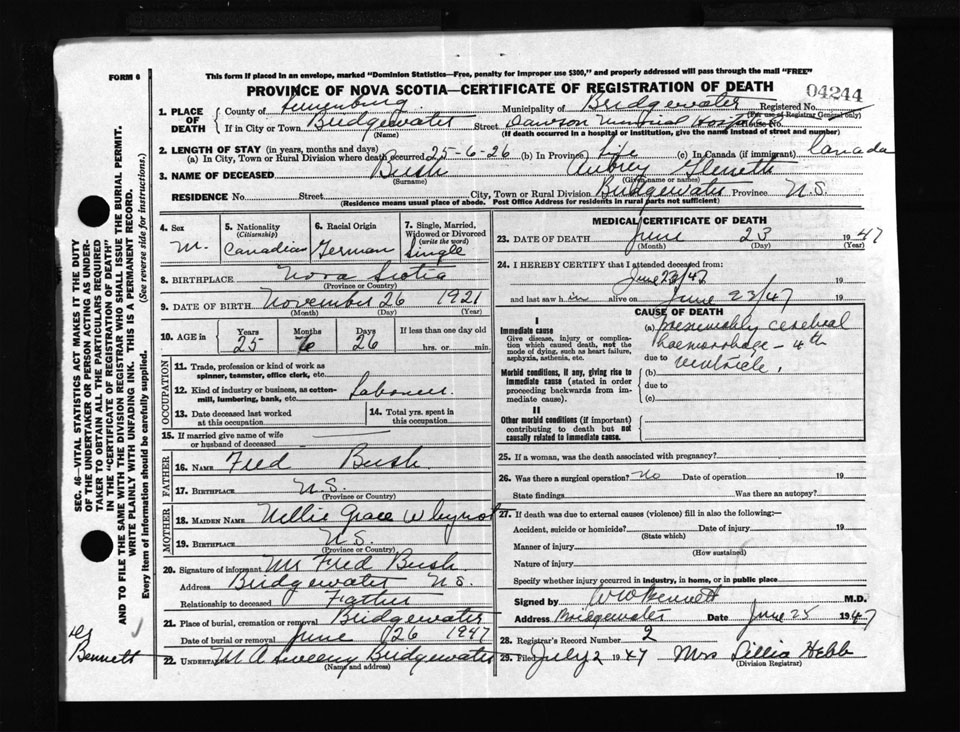 FORM 6
This form if placed in an envelope, marked "Dominion Statistics—Free, penalty for improper use $300," and properly addressed will pass through the mail "FREE"
PROVINCE OF NOVA SCOTIA—CERTIFICATE OF REGISTRATION OF DEATH
04244
1. PLACE OF DEATH
County of Lunenburg
Municipality of Bridgewater Registered No.
(For use of Registrar General only)
If in City or Town Bridgewater Street Dawson Memorial Hospital House No.
(Name) (If death occurred in a hospital or institution, give the name instead of street and number)
2. LENGTH OF STAY (in years, months and days)
(a) In City, Town or Rural Division where death occurred 25-6-26 (b) In Province Life (c) In Canada (if immigrant) Canada
3. NAME OF DECEASED Bush Aubrey
(Surname) (Given name or names)
RESIDENCE No. Street City, Town or Rural Division Bridgewater Province N.S.
(Residence means usual place of abode. Post Office Address for residents in rural parts not sufficient)
4. Sex M.
5. Nationality (Citizenship) Canadian
6. Racial Origin German
7. Single, Married, Widowed or Divorced (write the word) Single
8. BIRTHPLACE Nova Scotia
(Province or Country)
9. DATE OF BIRTH November 26 1921
(Month) (Day) (Year)
10. AGE in Years 25 Months 6 Days 26 If less than one day old hrs. or min.
OCCUPATION
11. Trade, profession or kind of work as spinner, teamster, office clerk, etc.
12. Kind of industry or business, as cotton-mill, lumbering, bank, etc. Labourer
13. Date deceased last worked at this occupation
14. Total yrs. spent in this occupation
15. If married give name of wife or husband of deceased
FATHER
16. NAME Fred Bush
17. BIRTHPLACE N.S.
(Province or Country)
MOTHER
18. MAIDEN NAME Nellie Grace Whynot
19. BIRTHPLACE N.S.
(Province or Country)
20. Signature of informant Mr Fred Bush
Address Bridgewater N.S.
Relationship to deceased Father
21. Place of burial, cremation or removal Bridgewater
Date of burial or removal June 26 1947
22. UNDERTAKER M A Sweeny Bridgewater
(Name and address)
MEDICAL CERTIFICATE OF DEATH
23. DATE OF DEATH June 23 1947
(Month) (Day) (Year)
24. I HEREBY CERTIFY that I attended deceased from:
June 23/47 19
and last saw him alive on June 23/47 19
CAUSE OF DEATH
I
Immediate cause
Give disease, injury or complication which caused death, not the mode of dying, such as heart failure, asphyxia, asthenia, etc.
(a) presumably cerebral
haemorrhage - 4th
due to ventricle.
Morbid conditions, if any, giving rise to immediate cause (stated in order proceeding backwards from immediate cause).
(b)
due to
(c)
II
Other morbid conditions (if important) contributing to death but not causally related to immediate cause.
25. If a woman, was the death associated with pregnancy?
26. Was there a surgical operation? No Date of operation 19
State findings Was there an autopsy?
27. If death was due to external causes (violence) fill in also the following:—
Accident, suicide or homicide? Date of injury 19
(State which)
Manner of injury
(How sustained)
Nature of injury
Specify whether injury occurred in industry, in home, or in public place
Signed by W O Bennett M.D.
Address Bridgewater Date June 25 1947
28. Registrar's Record Number 2
29. Filed July 2 1947 Mrs Lillia Hebb
(Division Registrar)
SEC. 46—VITAL STATISTICS ACT MAKES IT THE DUTY
OF THE UNDERTAKER OR PERSON ACTING AS UNDER-
TAKER TO OBTAIN ALL THE PARTICULARS REQUIRED
IN THE "CERTIFICATE OF REGISTRATION OF DEATH"
AND TO FILE THE SAME WITH THE DIVISION REGISTRAR WHO SHALL ISSUE THE BURIAL PERMIT.
WRITE PLAINLY WITH UNFADING INK. THIS IS A PERMANENT RECORD.
Every item of information should be carefully supplied. (See reverse side for instructions.)
Dr
Bennett